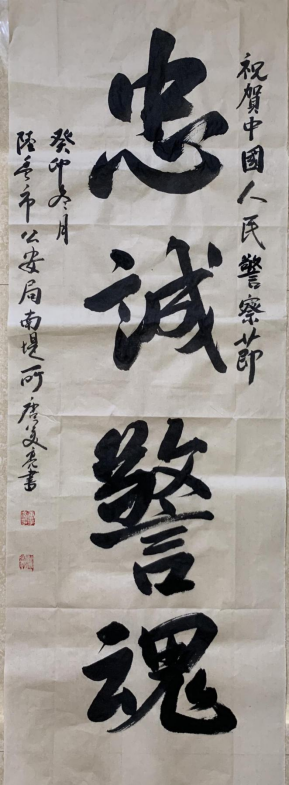 祝賀中國人民警察節
忠誠警魂
癸卯冬月
陸豐市公安局南堤所唐文亮書